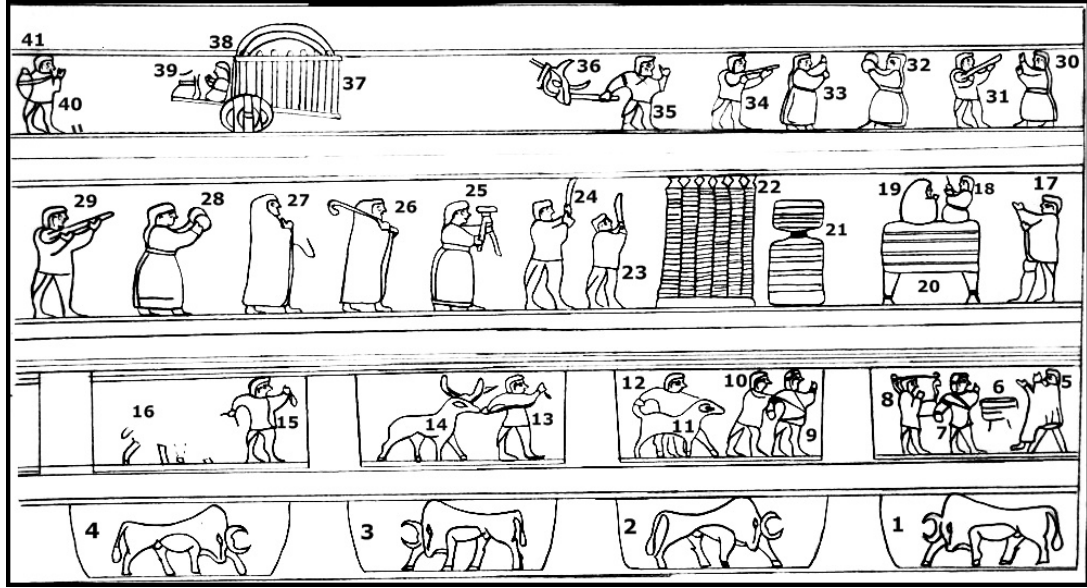 41 38 39 37 40 36 35 34 33 32 31 30
29 28 27 26 25 24 23 22 21 20 19 18 17
16 15 14 13 12 11 10 9 8 7 6 5
4 3 2 1